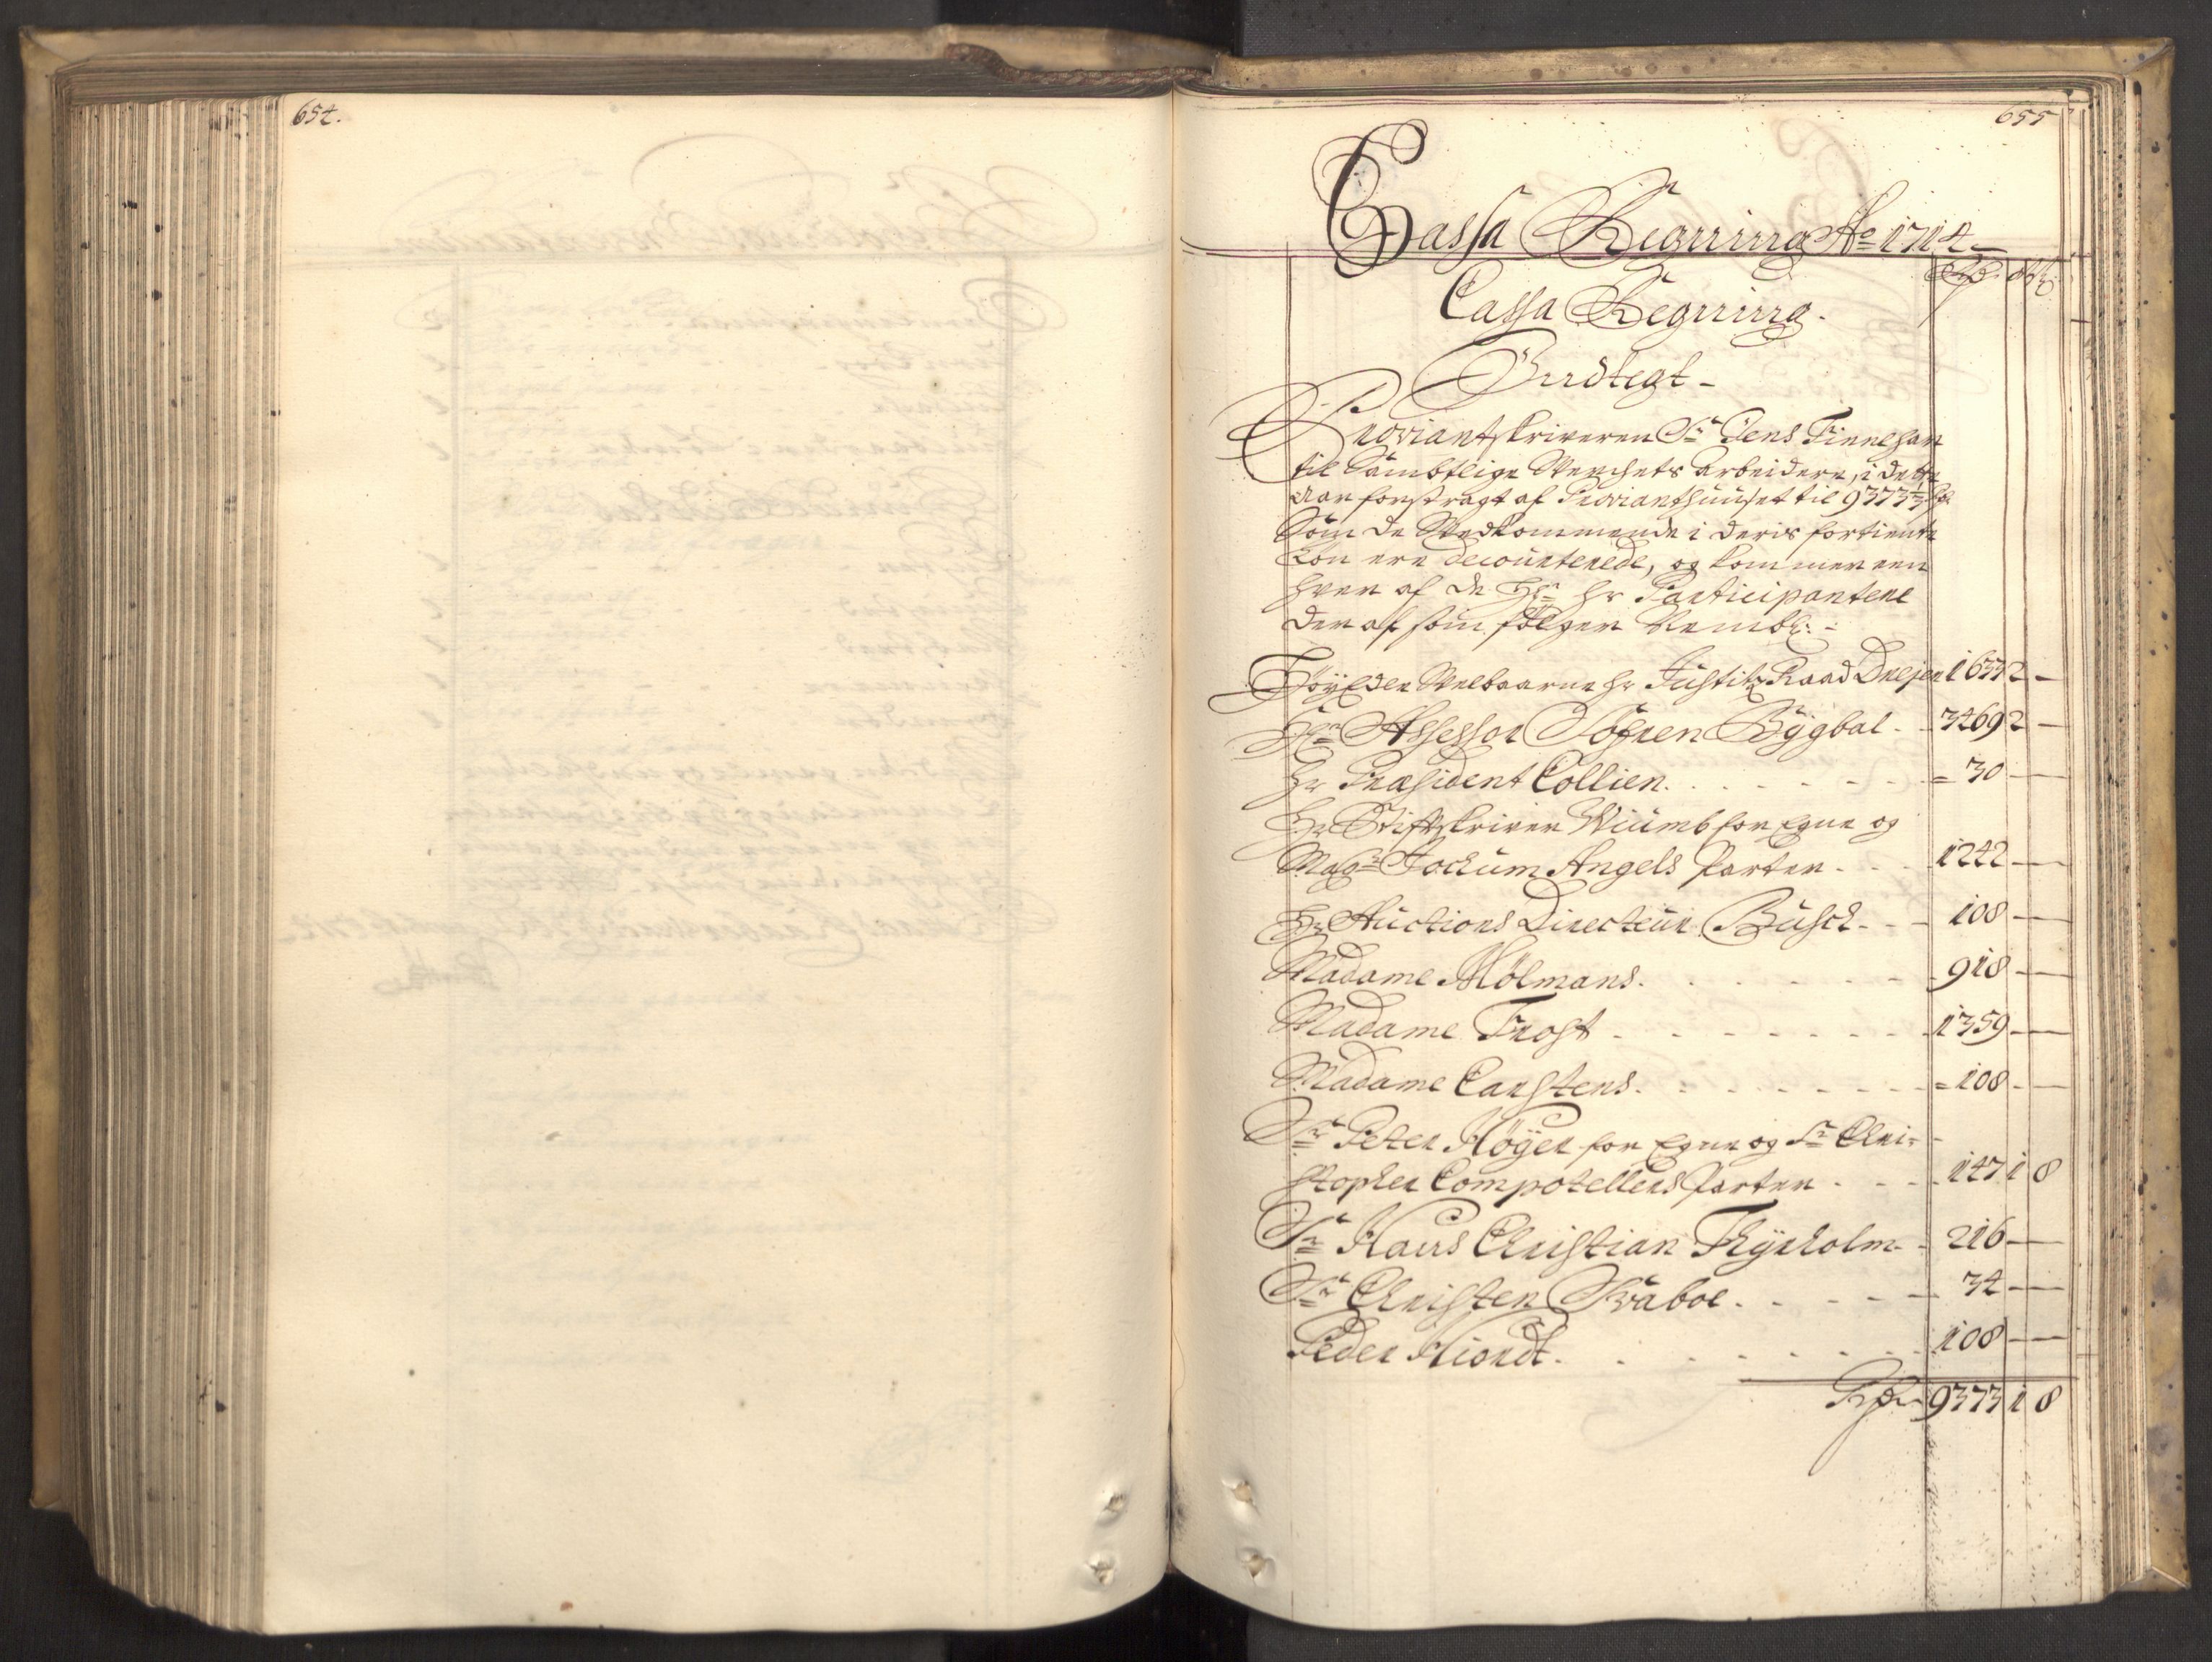 654.
655
Cassa Regning Ao 1714
Rdr ort ß
Cassa Regning.
Indtegt
Proviantskriveren Sr Jens Finnesan
til Sambtlige Verchets arbeidere, i dette
Aar forstragt af Provianthuuset til 9373
Som de Vedkommende i deris fortiente
Løn ere decourterede, og kommer een
hver af de Hr Hr Participantene
der af som følger Nembl:
Høyædle Velbaarne Hr Justitz Raad Drejer 1633 2 -
Hr Assessor Søfren Bygbal - 3469 2 -
Hr Præsident Collien - 30 -
Hr Stiftskriver Wiumb for Egne og
Magr Jochum Angels Parter - 1242 -
Hr Auctions Directeur Busch - 108 -
Madame Mølmans - 918 -
Madame Frost - 1359 -
Madame Carstens - 108 -
Sr Peter Høyer for Egne og Sr Chri-
stopher Compotellers Parter - 147 1 8
Sr Hans Christian Thyrholm - 216 -
Sr Christen Svaboe - 34 -
Peder Hiordt - 108 -
Rdr 9373 1 8